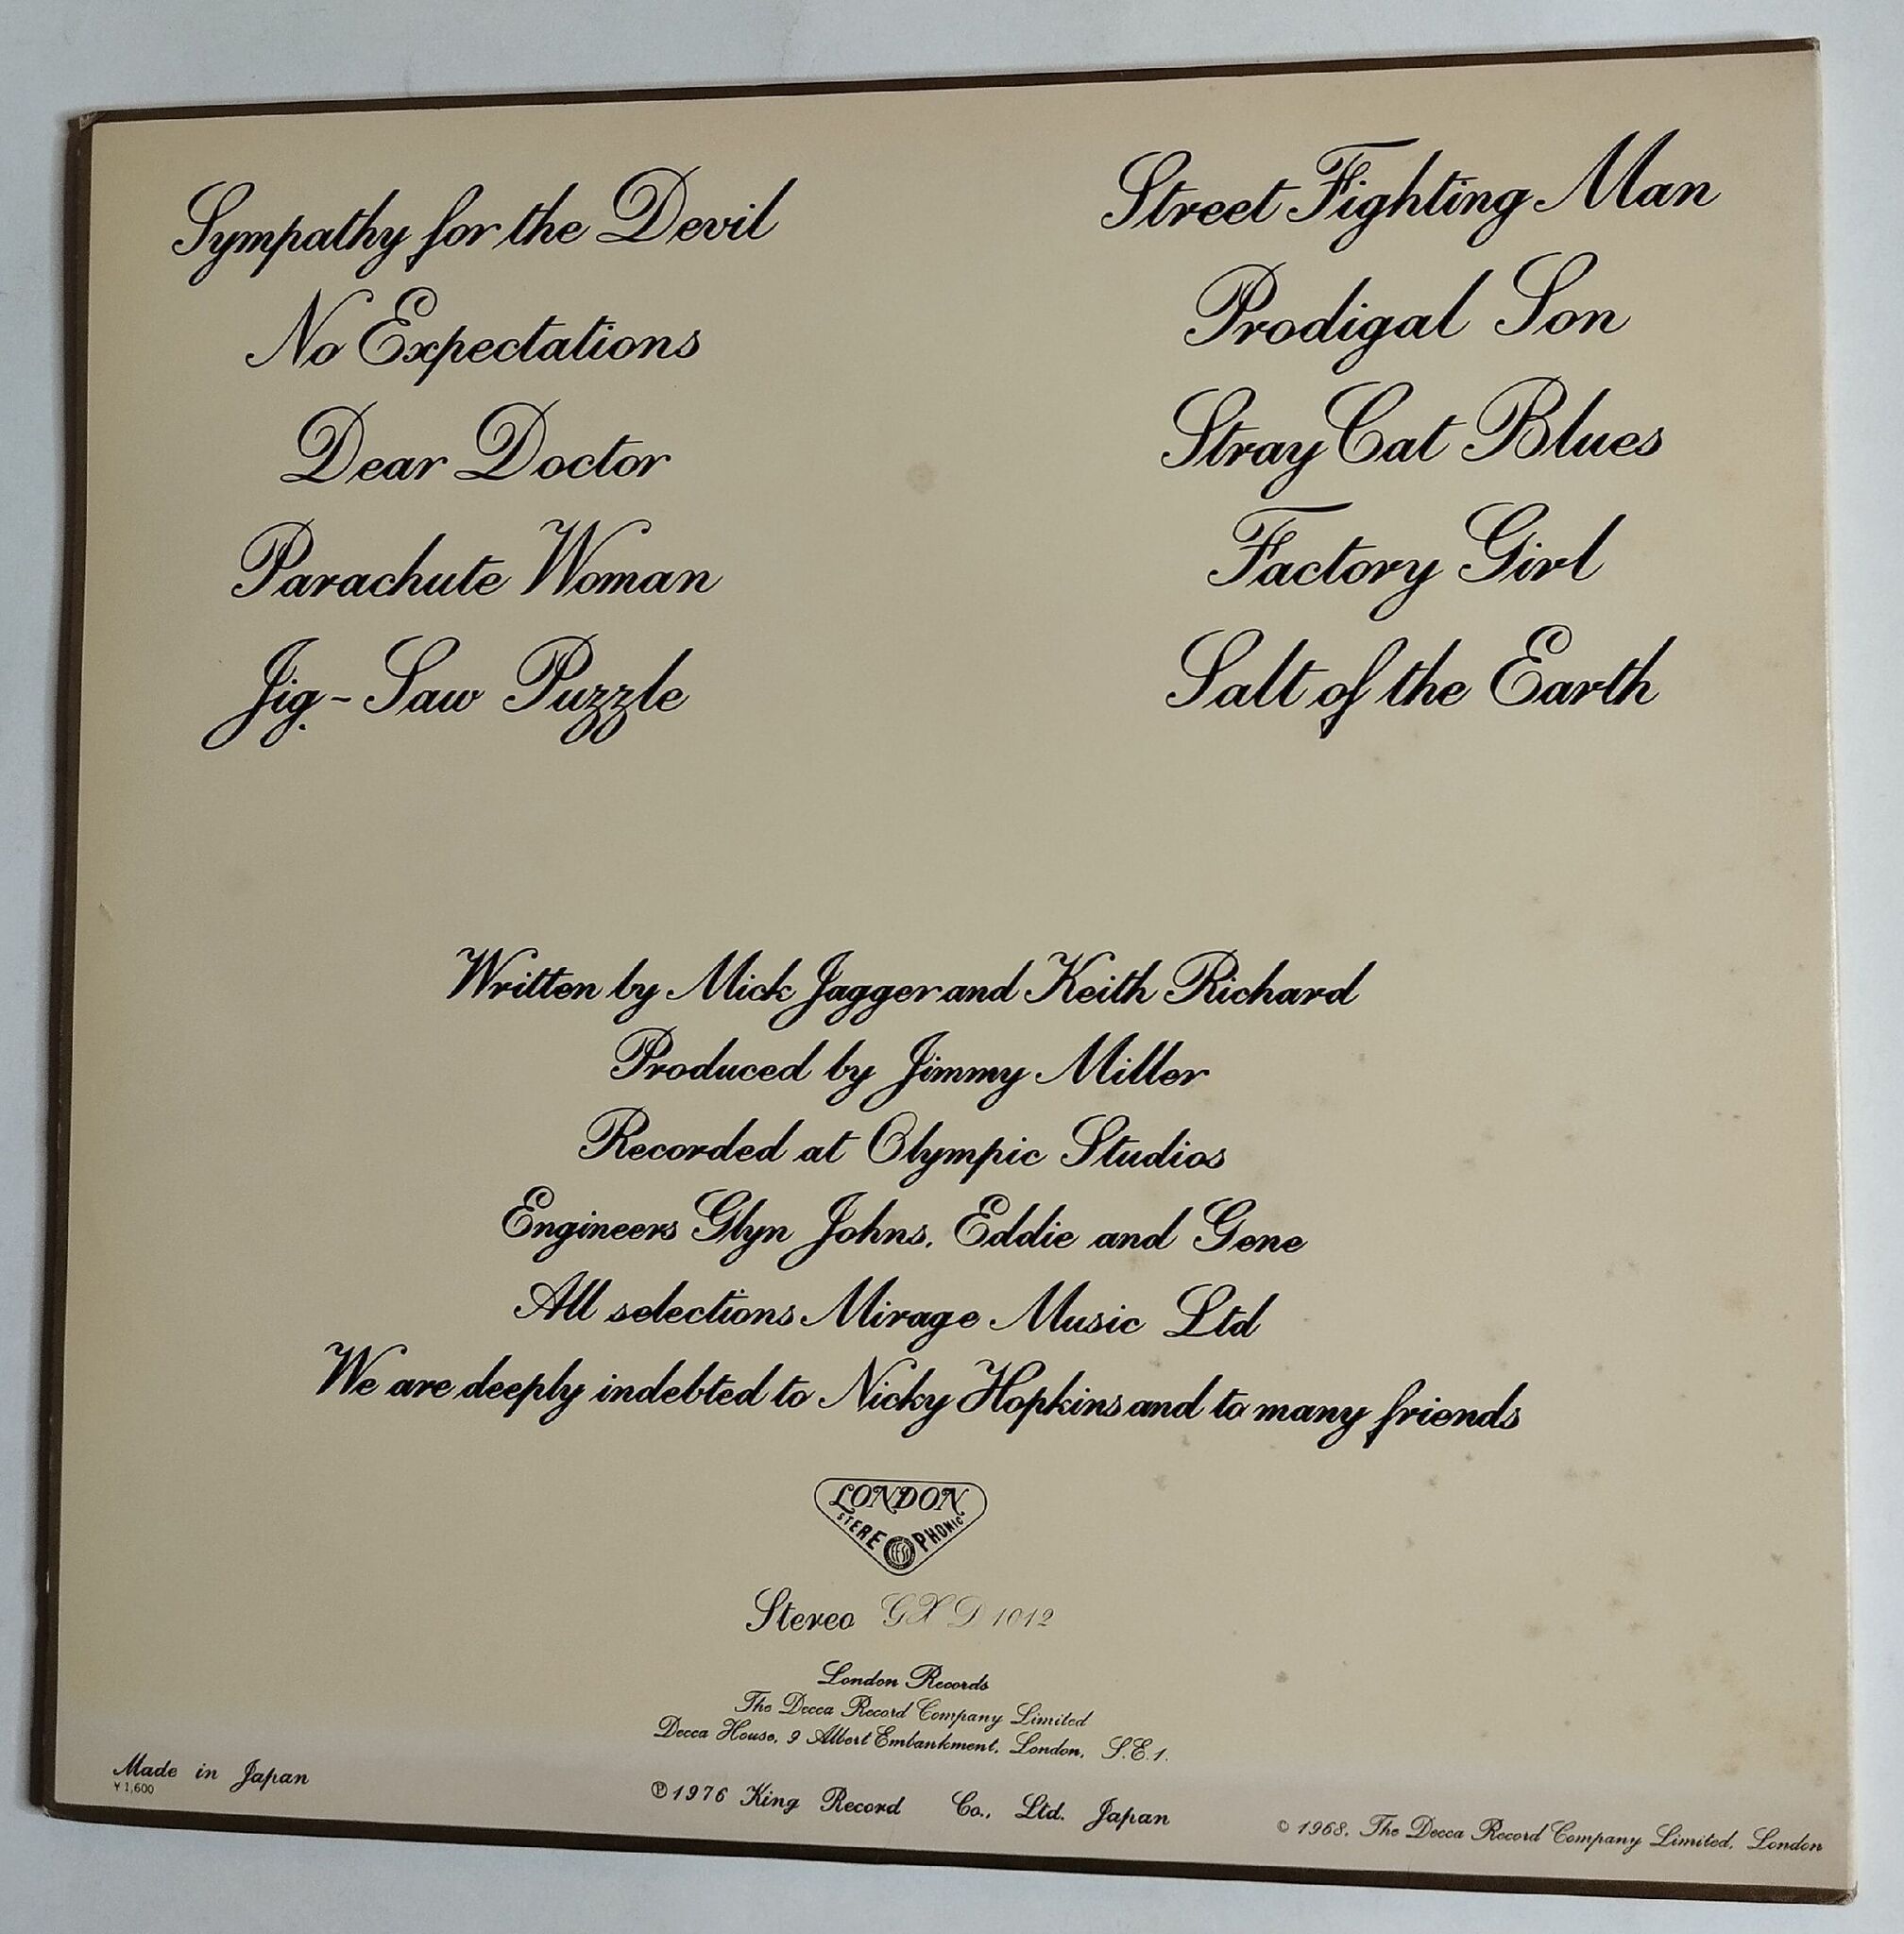 Sympathy for the Devil
No Expectations
Dear Doctor
Parachute Woman
Jig-Saw Puzzle
Street Fighting Man
Prodigal Son
Stray Cat Blues
Factory Girl
Salt of the Earth
Written by Mick Jagger and Keith Richard
Produced by Jimmy Miller
Recorded at Olympic Studios
Engineers Glyn Johns, Eddie and Gene
All selections Mirage Music Ltd
We are deeply indebted to Nicky Hopkins and to many friends
LONDON
STEREOPHONIC
ffss
Stereo GXD 1012
London Records
The Decca Record Company Limited
Decca House, 9 Albert Embankment, London, S.E.1.
Made in Japan
¥1,600
℗1976 King Record Co., Ltd. Japan
© 1968, The Decca Record Company Limited, London